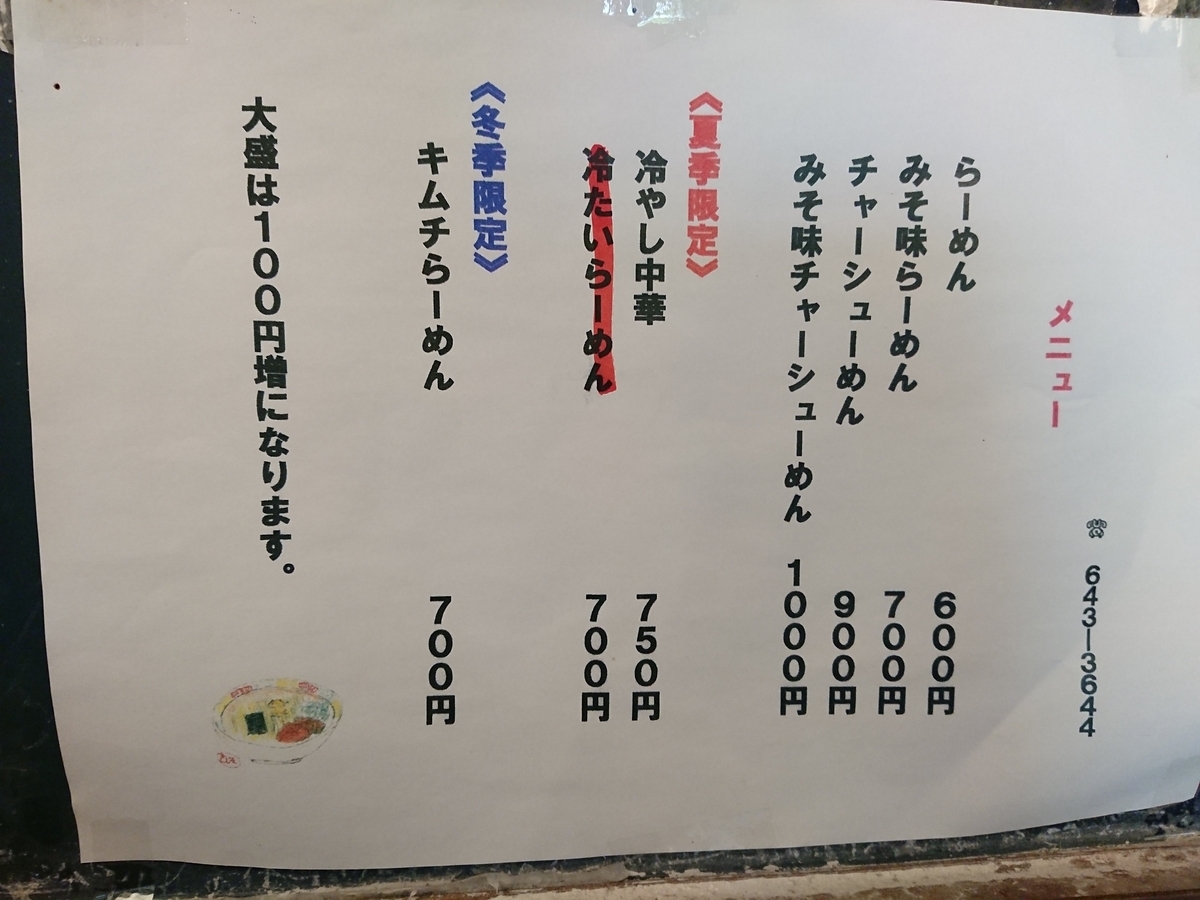 ☎ 643-3644
メニュー
らーめん 600円
みそ味らーめん 700円
チャーシューめん 900円
みそ味チャーシューめん 1000円
《夏季限定》
冷やし中華 750円
冷たいらーめん 700円
《冬季限定》
キムチらーめん 700円
大盛は100円増になります。